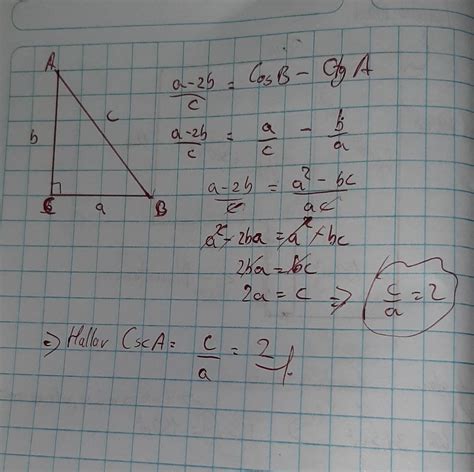 A
b
c
C
a
B
a-2b/c = CosB - Ctg A
a-2b/c = a/c - b/a
a-2b/c = a² - bc/ac
a² - 2ba = a² - bc
2ba = bc
2a = c ⇒ c/a = 2
⇒ Hallar CscA = c/a = 2